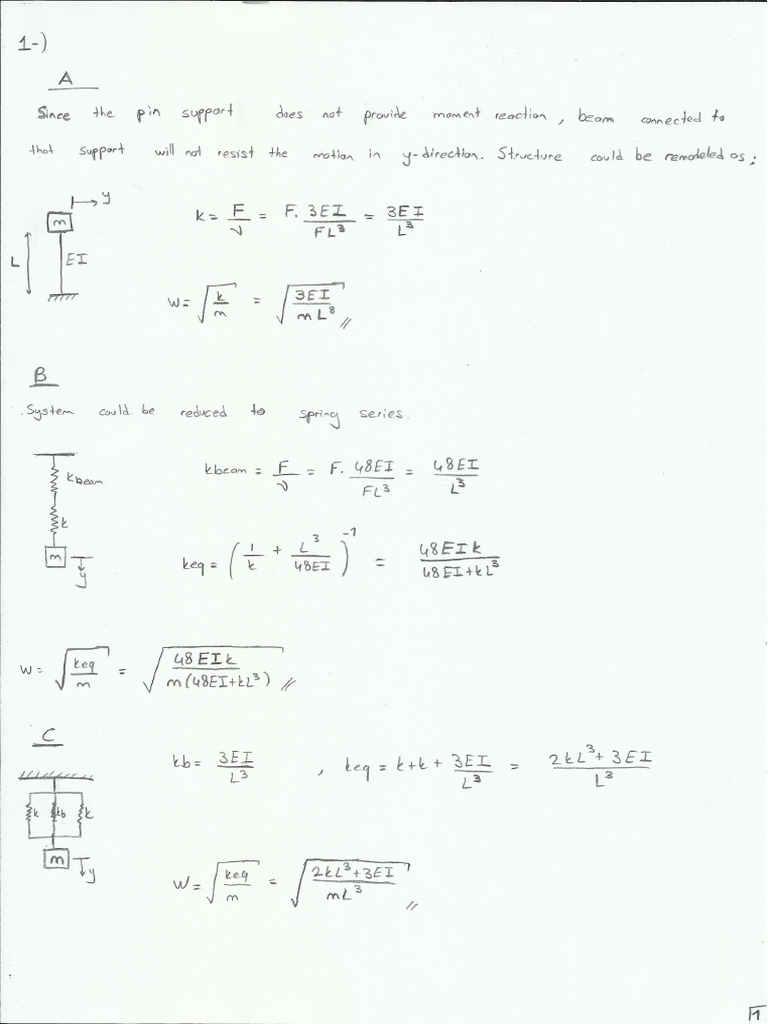 1-)
A
Since the pin support does not provide moment reaction, beam connected to
that support will not resist the motion in y-direction. Structure could be remodeled as;
y
m
L
EI
k = F/v = F. 3EI/FL³ = 3EI/L³
w = √(k/m) = √(3EI/mL³) //
B
.System could be reduced to spring series.
kbeam
k
m
y
kbeam = F/v = F. 48EI/FL³ = 48EI/L³
keq = (1/k + L³/48EI)⁻¹ = 48EIk/48EI+kL³
w = √(keq/m) = √(48EIk/m(48EI+kL³)) //
C
k kb k
m
y
kb = 3EI/L³ , keq = k+k+ 3EI/L³ = 2kL³+3EI/L³
w = √(keq/m) = √(2kL³+3EI/mL³) //
1